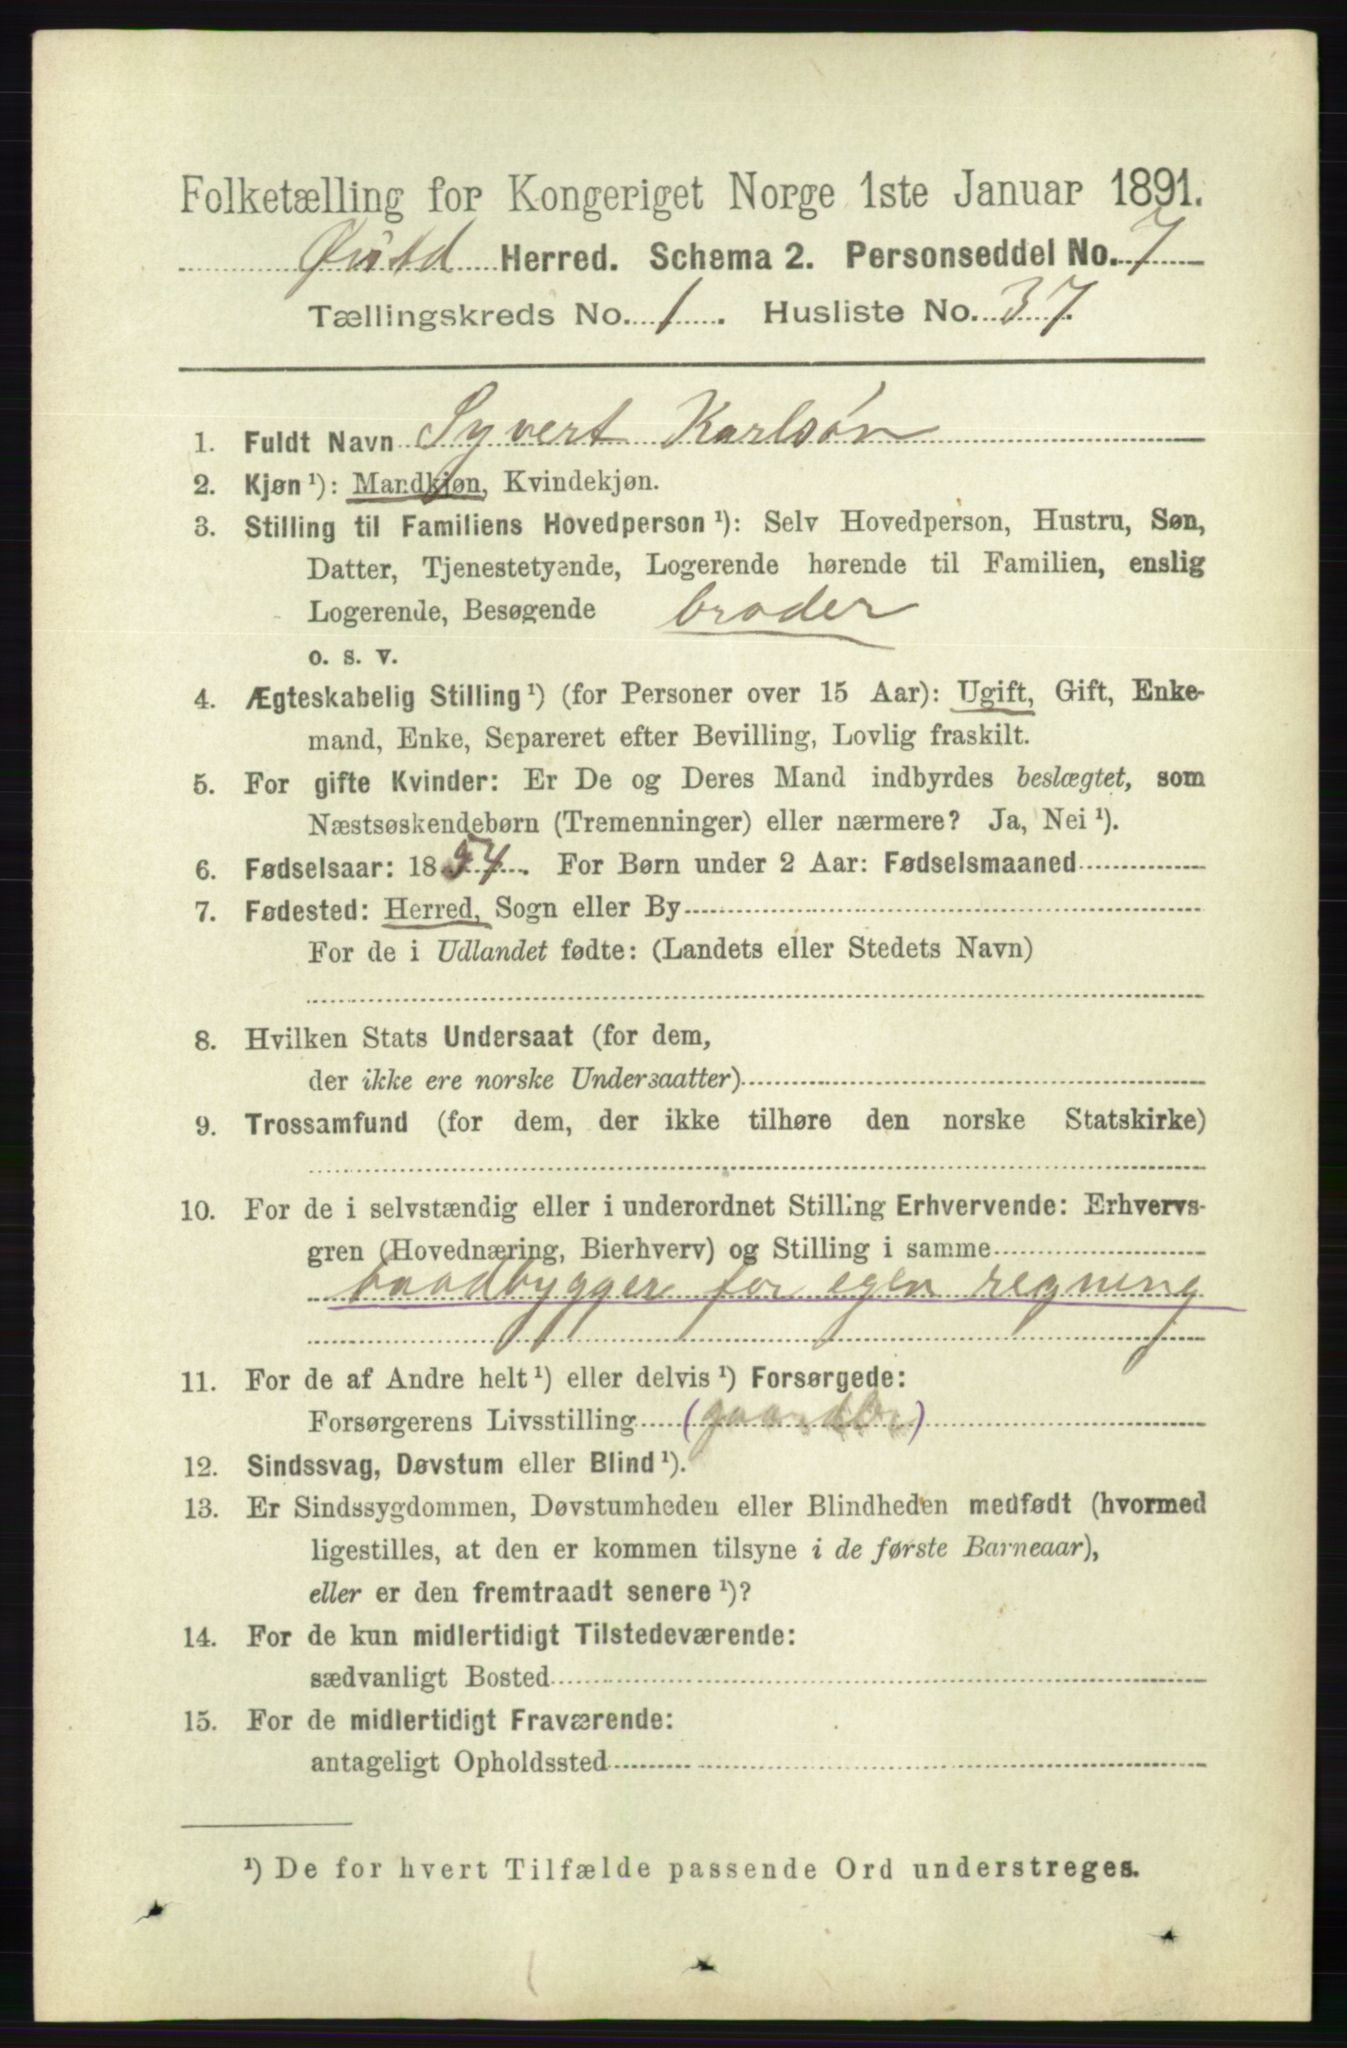 Folketælling for Kongeriget Norge 1ste Januar 1891.
Herred. Schema 2. Personseddel No. 7
Tællingskreds No. 1. Husliste No. 37.
1. Fuldt Navn Syvert Karlsøn
2. Kjøn ¹): Mandkjøn, Kvindekjøn.
3. Stilling til Familiens Hovedperson ¹): Selv Hovedperson, Hustru, Søn,
Datter, Tjenestetyende, Logerende hørende til Familien, enslig
Logerende, Besøgende broder
o. s. v.
4. Ægteskabelig Stilling ¹) (for Personer over 15 Aar): Ugift, Gift, Enke-
mand, Enke, Separeret efter Bevilling, Lovlig fraskilt.
5. For gifte Kvinder: Er De og Deres Mand indbyrdes beslægtet, som
Næstsøskendebørn (Tremenninger) eller nærmere? Ja, Nei ¹).
6. Fødselsaar: 1854. For Børn under 2 Aar: Fødselsmaaned
7. Fødested: Herred, Sogn eller By
For de i Udlandet fødte: (Landets eller Stedets Navn)
8. Hvilken Stats Undersaat (for dem,
der ikke ere norske Undersaatter)
9. Trossamfund (for dem, der ikke tilhøre den norske Statskirke)
10. For de i selvstændig eller i underordnet Stilling Erhvervende: Erhvervs-
gren (Hovednæring, Bierhverv) og Stilling i samme
baadbygger for egen regning
11. For de af Andre helt ¹) eller delvis ¹) Forsørgede:
Forsørgerens Livsstilling
12. Sindssvag, Døvstum eller Blind ¹).
13. Er Sindssygdommen, Døvstumheden eller Blindheden medfødt (hvormed
ligestilles, at den er kommen tilsyne i de første Barneaar),
eller er den fremtraadt senere ¹)?
14. For de kun midlertidigt Tilstedeværende:
sædvanligt Bosted
15. For de midlertidigt Fraværende:
antageligt Opholdssted
¹) De for hvert Tilfælde passende Ord understreges.